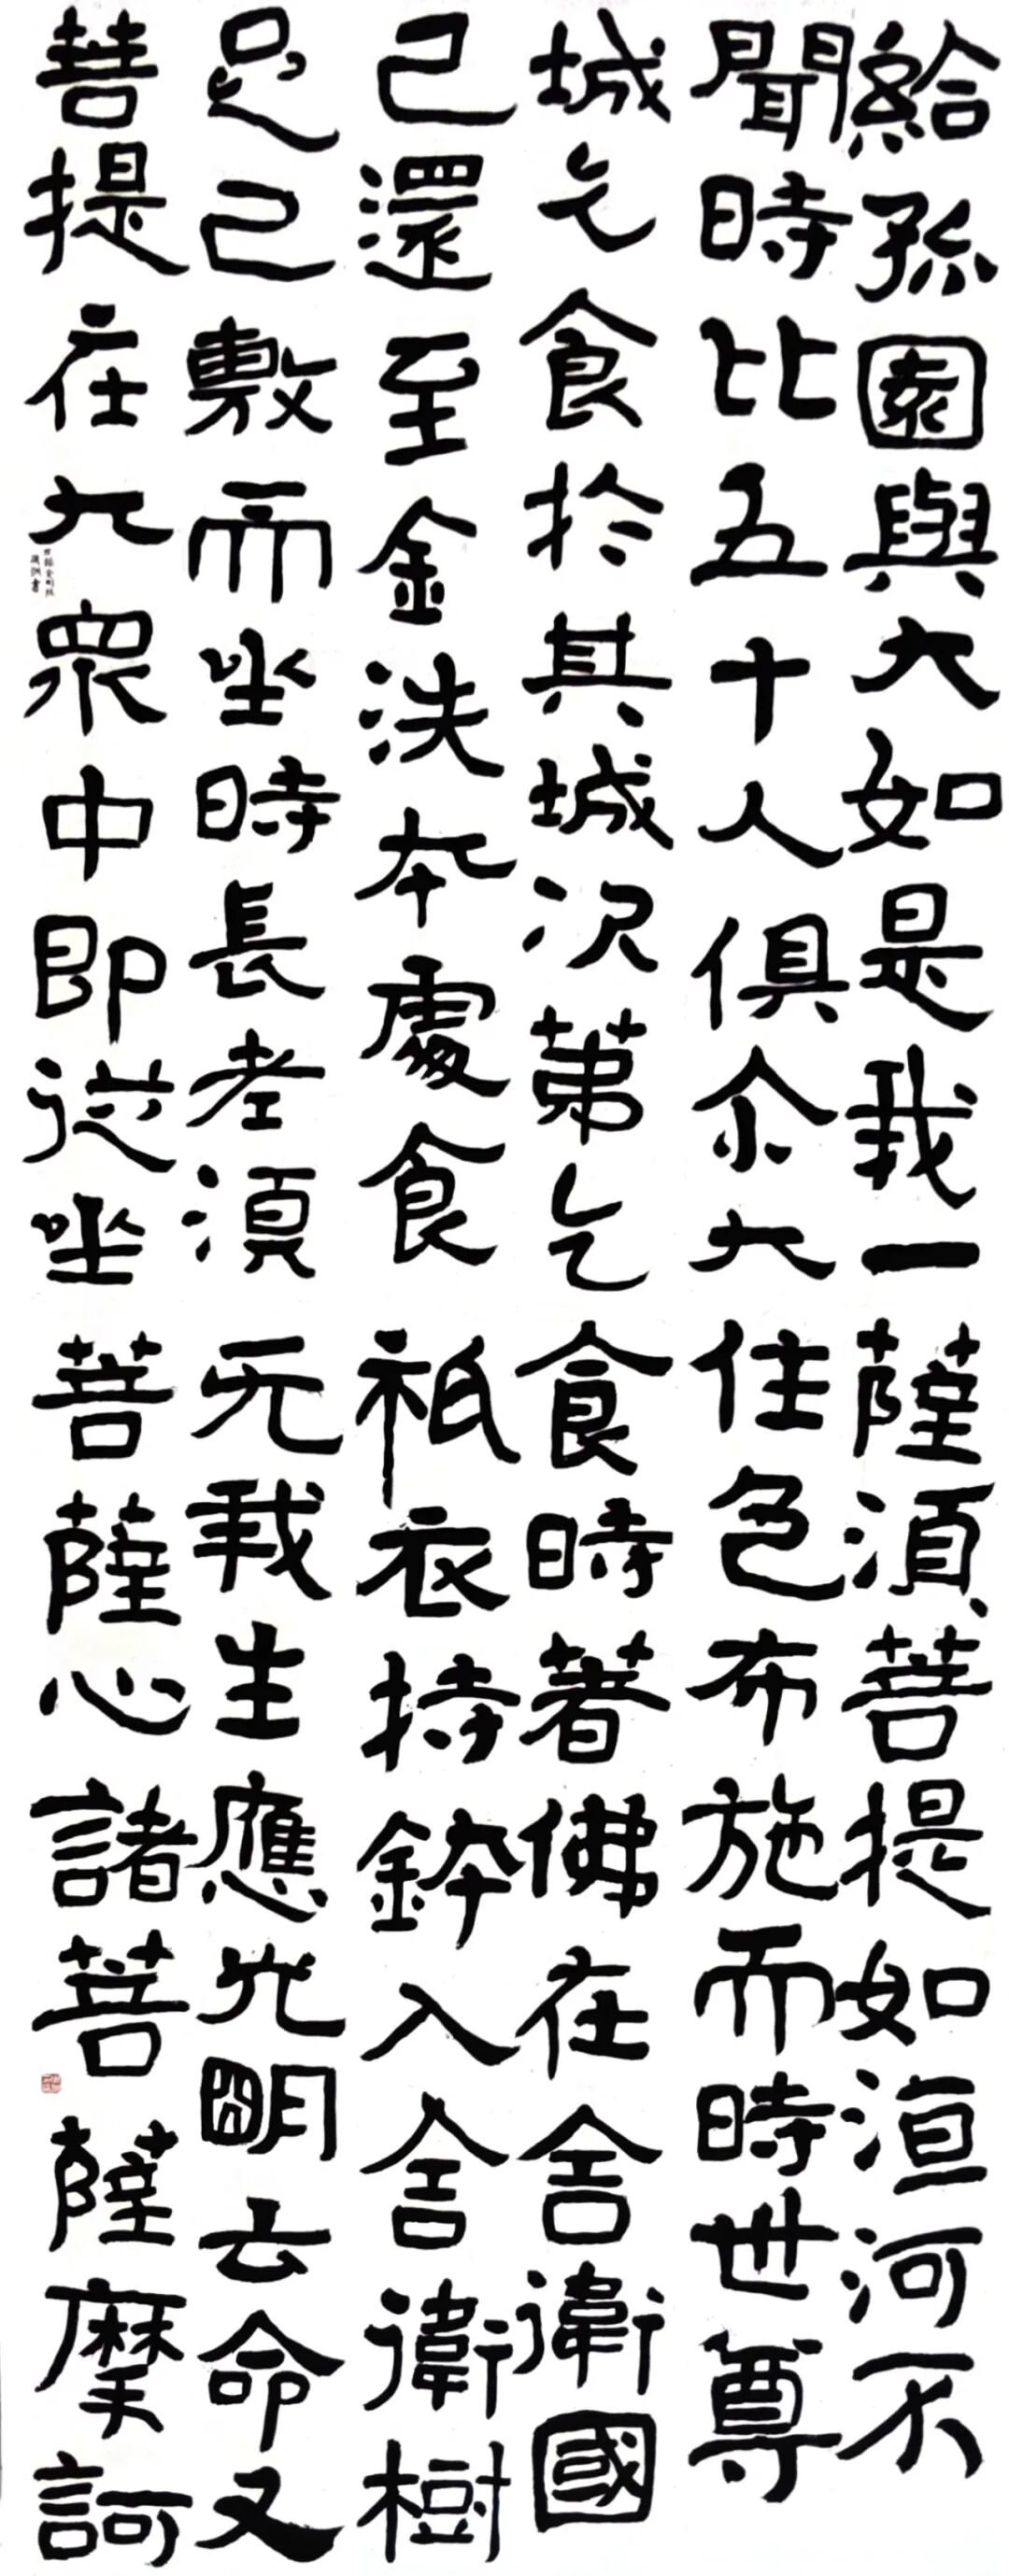 給孤園與大如是我一薩須菩提如洹河不
聞時比五十人俱尒大住色布施而時世尊
城乞食於其城次第乞食時著佛在舍衛國
已還至金洗本處食祇衣持鉢入舍衛樹
足已敷而坐時長老須无我生應光明去命又
菩提在大眾中即從坐菩薩心諸菩薩摩訶